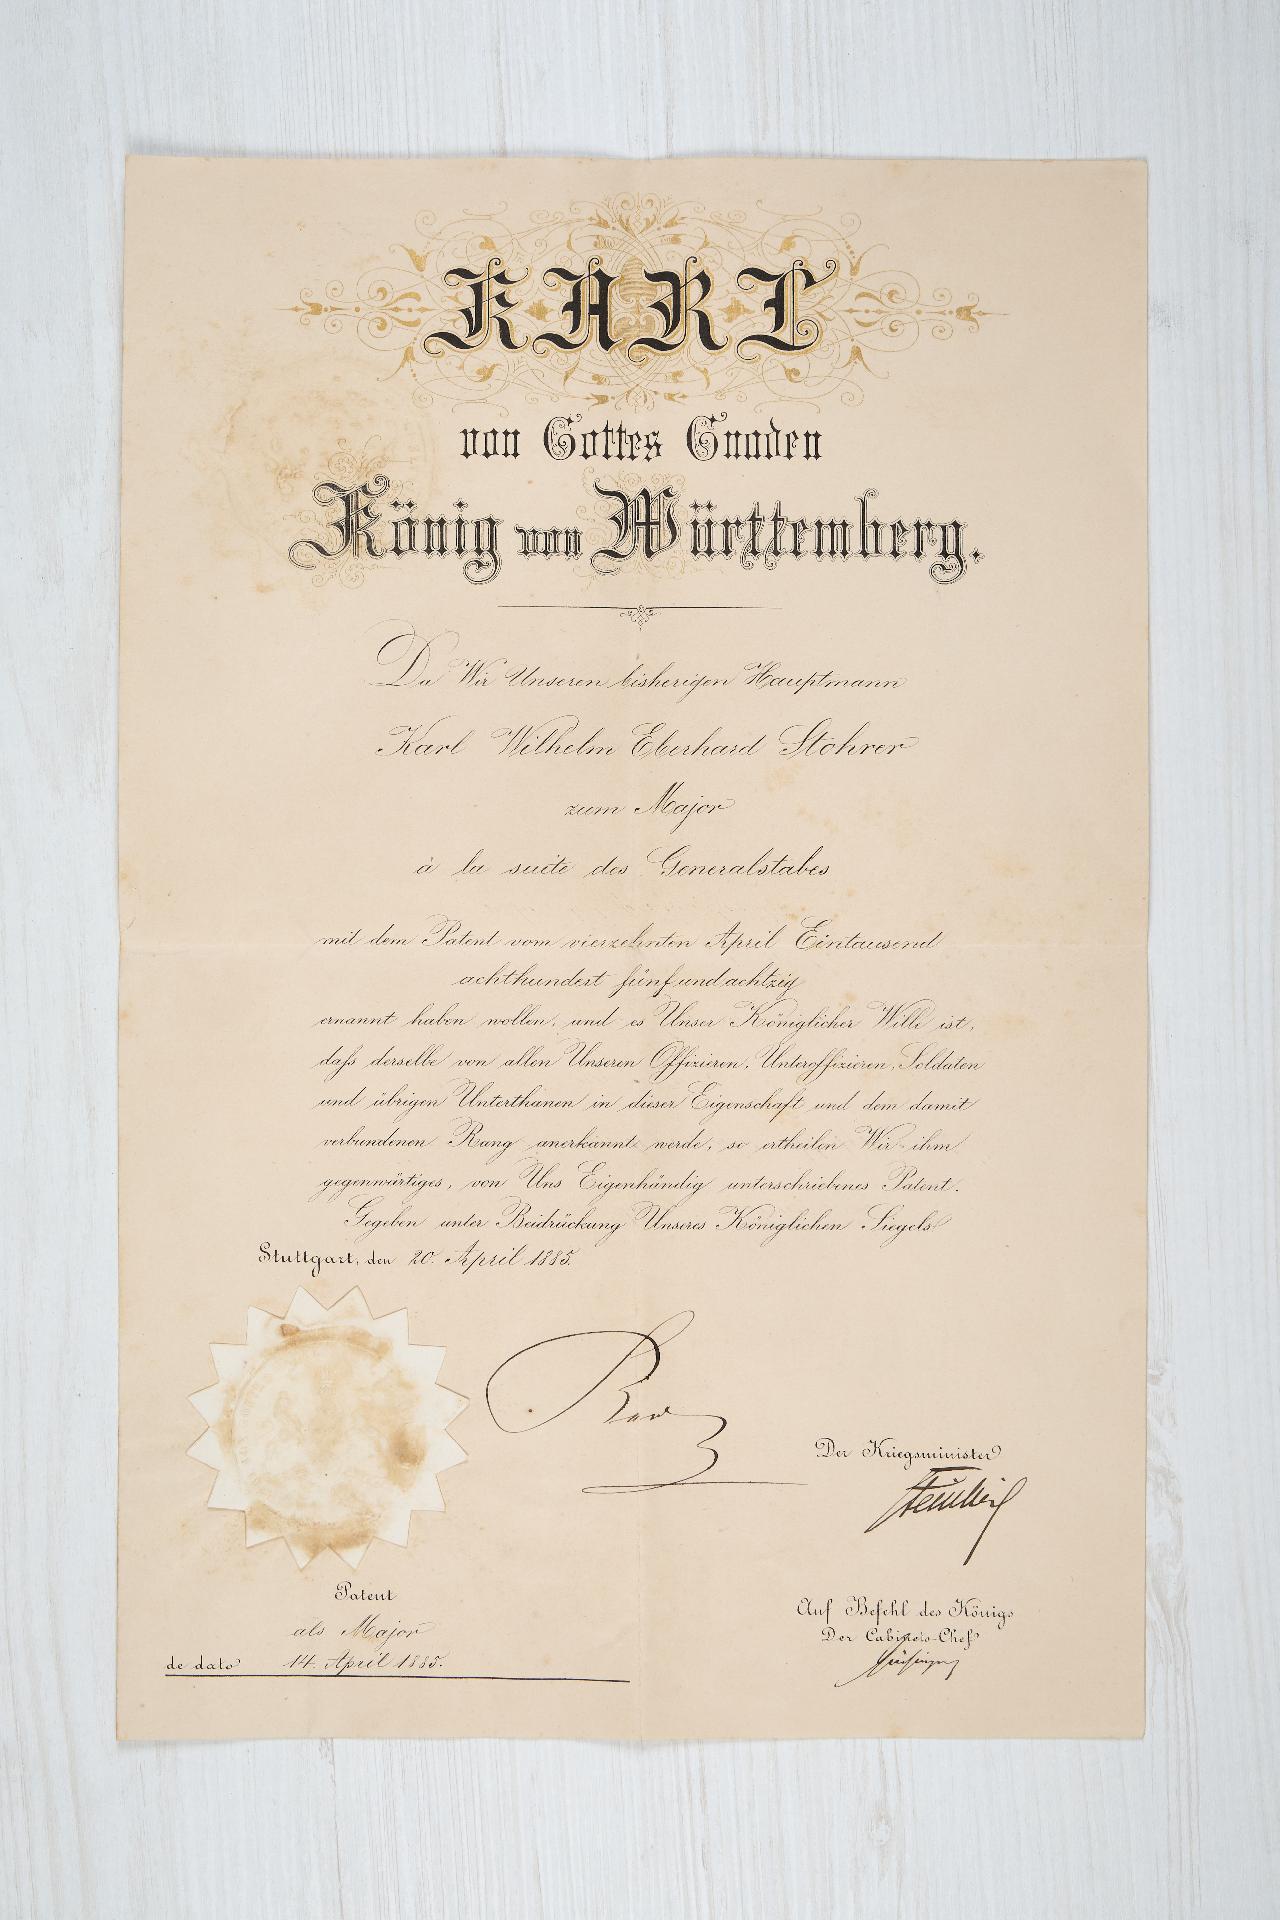 KARL
von Gottes Gnaden
König von Württemberg.
Da Wir Unseren bisherigen Hauptmann
Karl Wilhelm Eberhard Stohrer
zum Major
à la suite des Generalstabes
mit dem Patent vom vierzehnten April Eintausend
achthundert fünfundachtzig
ernannt haben wollen, und es Unser Königlicher Wille ist,
daß derselbe von allen Unseren Offizieren, Unteroffizieren, Soldaten
und übrigen Unterthanen in dieser Eigenschaft und dem damit
verbundenen Rang anerkannt werde, so ertheilen Wir ihm
gegenwärtiges, von Uns Eigenhändig unterschriebenes Patent.
Gegeben unter Beidrückung Unseres Königlichen Siegels
Stuttgart, den 20. April 1885.
Karl
Der Kriegsminister
Patent
als Major
de dato 14. April 1885.
Auf Befehl des Königs
Der Cabinets-Chef